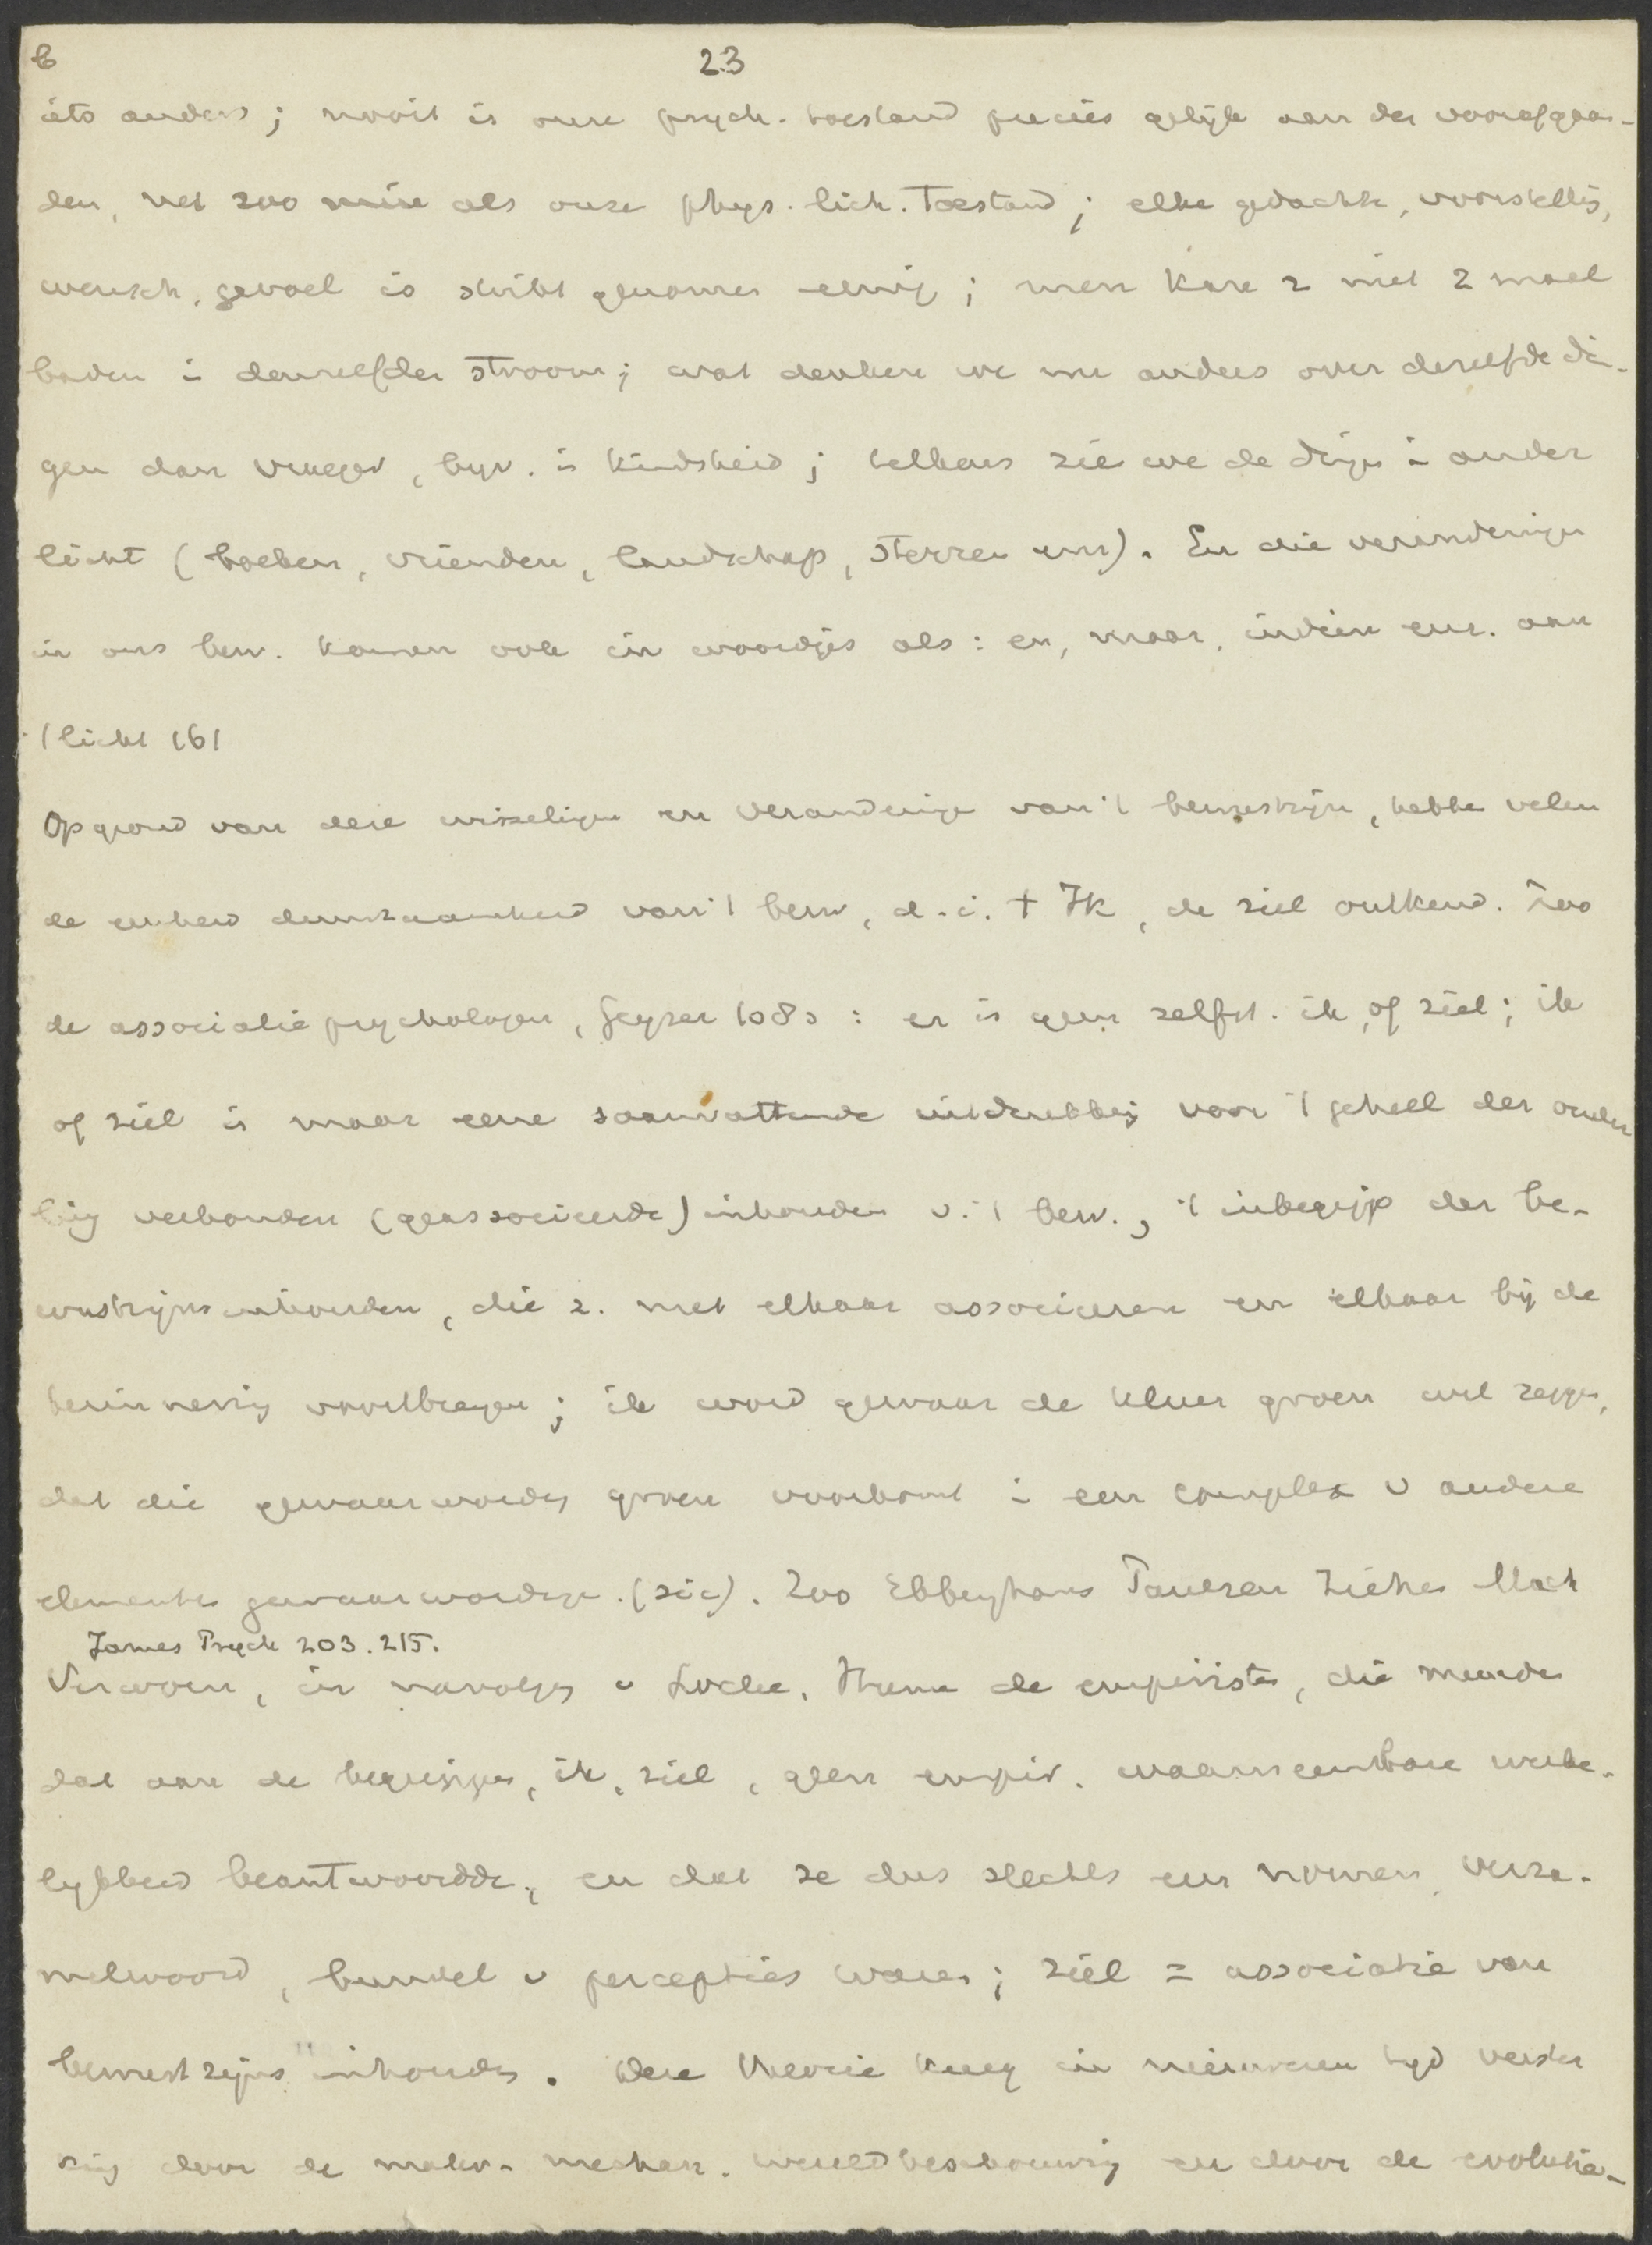 6
23
iets anders; nooit is onze psych. toestand precies gelijk aan den voorafgaan-
den, net zoo min als onze phys. lich. toestand; elke gedachte, voorstellg,
wensch, gevoel is strikt genomen eenig; men kan z niet 2 maal
baden i denzelfden stroom; wat denken we nu anders over dezelfde din-
gen dan vroeger, byv. in kindsheid; telkens zien we de dingen i ander
licht (boeken, vrienden, landschap, sterren enz). En die veranderingen
in ons bew. komen ook in woordjes als: en, maar, indien enz. aan
't licht 161
Op grond van deze wisselingen en veranderingen van 't bewustzijn, hebben velen
de eenheid duurzaamheid van 't bew, d.i. 't Ik, de ziel ontkend. Zoo
de associatie psychologen, Geyser 108 : er is geen zelfst. ik, of ziel; ik
of ziel is maar eene saamvattende uitdrukking voor 't geheel der onder
ling verbonden (geassocieerde) inhouden v. 't bew., 't inbegrip der be-
wustzijnsinhouden, die z. met elkaar associeren en elkaar bij de
herinnering voortbrengen; ik word gewaar de kleur groen wil zeggen,
dat die gewaarwording groen voorkomt i een complex v andere
elementen gewaarwordingen. (sic). Zoo Ebbinghaus Paulsen Ziehen Mach
James Psych 203. 215.
Verworn, in navolging v Locke, Hume de empiristen, die meenden
dat aan de begrippen, ik, ziel, geen empir. waarneembare werke-
lijkheid beantwoordde, en dat ze dus slechts een nomen, verza-
melwoord, bundel v percepties waren; ziel = associatie van
bewustzijnsinhouden. Deze theorie kreeg in nieuweren tyd verster
king door de mater. mechan. wereldbeschouwing en door de evolutie-